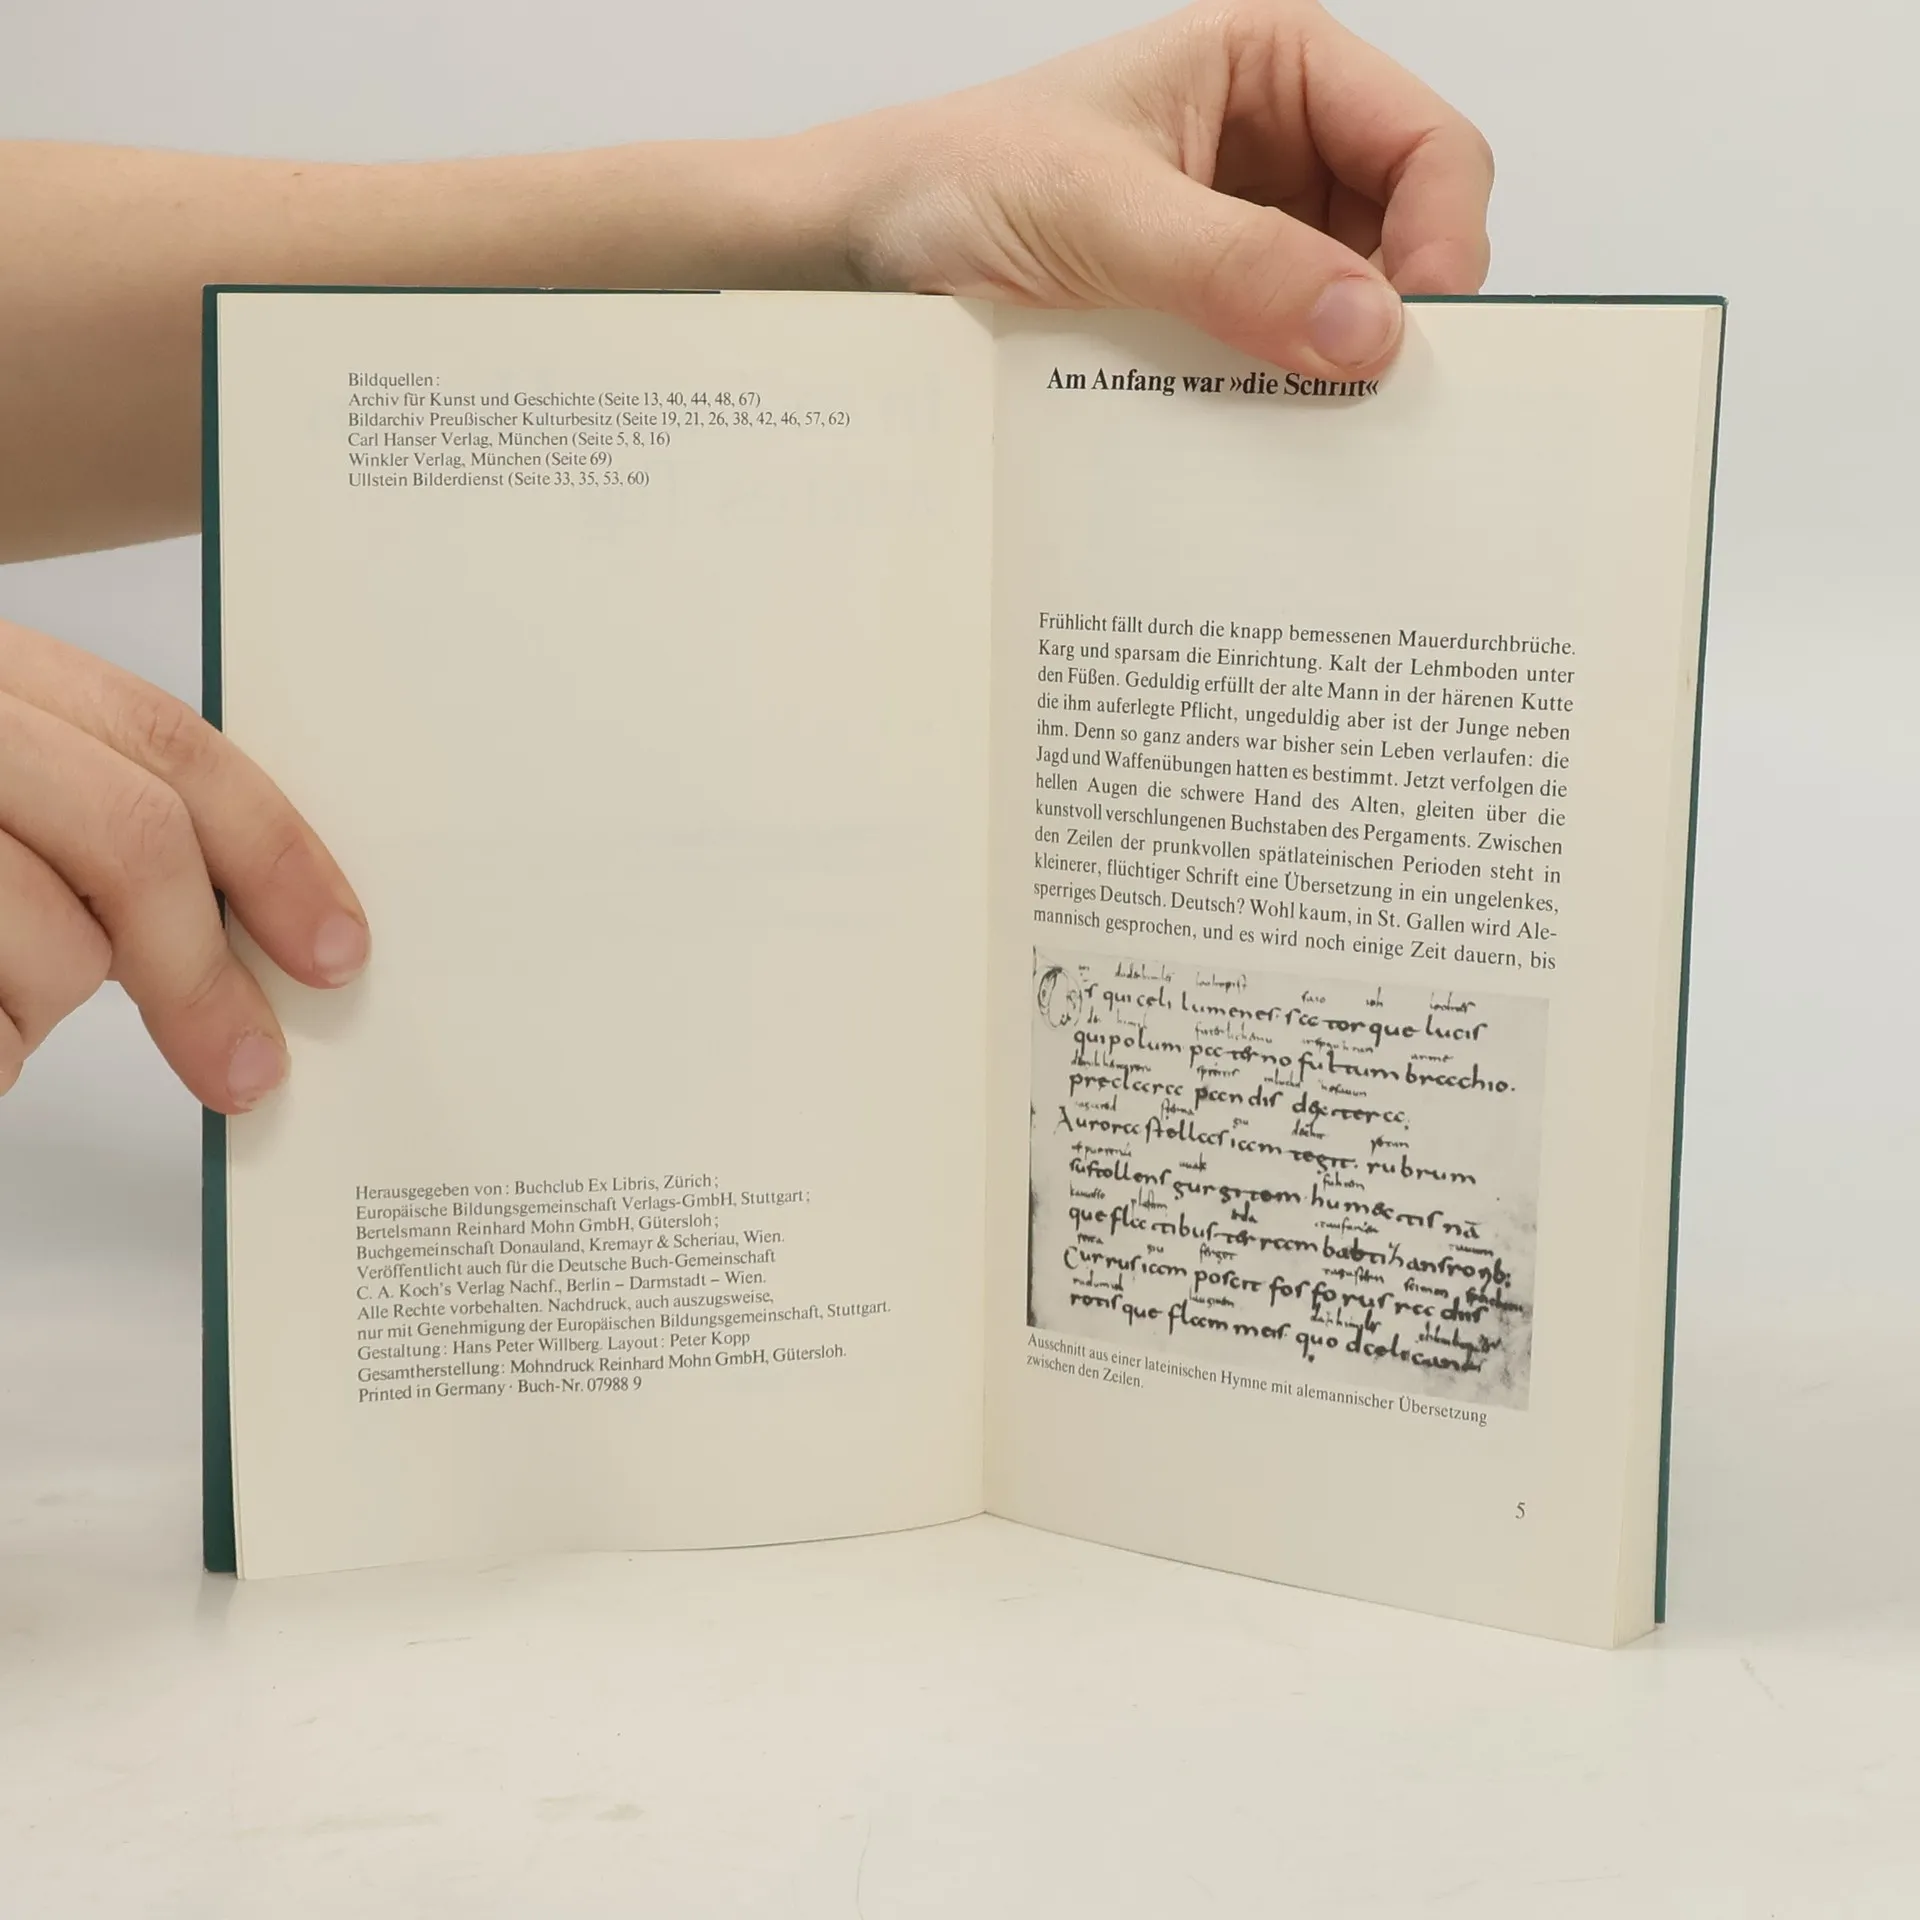 Bildquellen:
Archiv für Kunst und Geschichte (Seite 13, 40, 44, 48, 67)
Bildarchiv Preußischer Kulturbesitz (Seite 19, 21, 26, 38, 42, 46, 57, 62)
Carl Hanser Verlag, München (Seite 5, 8, 16)
Winkler Verlag, München (Seite 69)
Ullstein Bilderdienst (Seite 33, 35, 53, 60)
Herausgegeben von: Buchclub Ex Libris, Zürich;
Europäische Bildungsgemeinschaft Verlags-GmbH, Stuttgart;
Bertelsmann Reinhard Mohn GmbH, Gütersloh;
Buchgemeinschaft Donauland, Kremayr & Scheriau, Wien.
Veröffentlicht auch für die Deutsche Buch-Gemeinschaft
C. A. Koch's Verlag Nachf., Berlin – Darmstadt – Wien.
Alle Rechte vorbehalten. Nachdruck, auch auszugsweise,
nur mit Genehmigung der Europäischen Bildungsgemeinschaft, Stuttgart.
Gestaltung: Hans Peter Willberg. Layout: Peter Kopp
Gesamtherstellung: Mohndruck Reinhard Mohn GmbH, Gütersloh.
Printed in Germany · Buch-Nr. 07988 9
Am Anfang war »die Schrift«
Frühlicht fällt durch die knapp bemessenen Mauerdurchbrüche.
Karg und sparsam die Einrichtung. Kalt der Lehmboden unter
den Füßen. Geduldig erfüllt der alte Mann in der härenen Kutte
die ihm auferlegte Pflicht, ungeduldig aber ist der Junge neben
ihm. Denn so ganz anders war bisher sein Leben verlaufen: die
Jagd und Waffenübungen hatten es bestimmt. Jetzt verfolgen die
hellen Augen die schwere Hand des Alten, gleiten über die
kunstvoll verschlungenen Buchstaben des Pergaments. Zwischen
den Zeilen der prunkvollen spätlateinischen Perioden steht in
kleinerer, flüchtiger Schrift eine Übersetzung in ein ungelenkes,
sperriges Deutsch. Deutsch? Wohl kaum, in St. Gallen wird Ale-
mannisch gesprochen, und es wird noch einige Zeit dauern, bis
qui celi lumen es satorque lucis
qui polum paterno fultum brachio
preclara pandis dextera
Aurora stellas iam tegit rubrum
sustollens gurgitem humectis nā
que flatibus terram baptizans
Currus iam poscit fosforus
rotis que flammeis quo
Ausschnitt aus einer lateinischen Hymne mit alemannischer Übersetzung
zwischen den Zeilen.
5